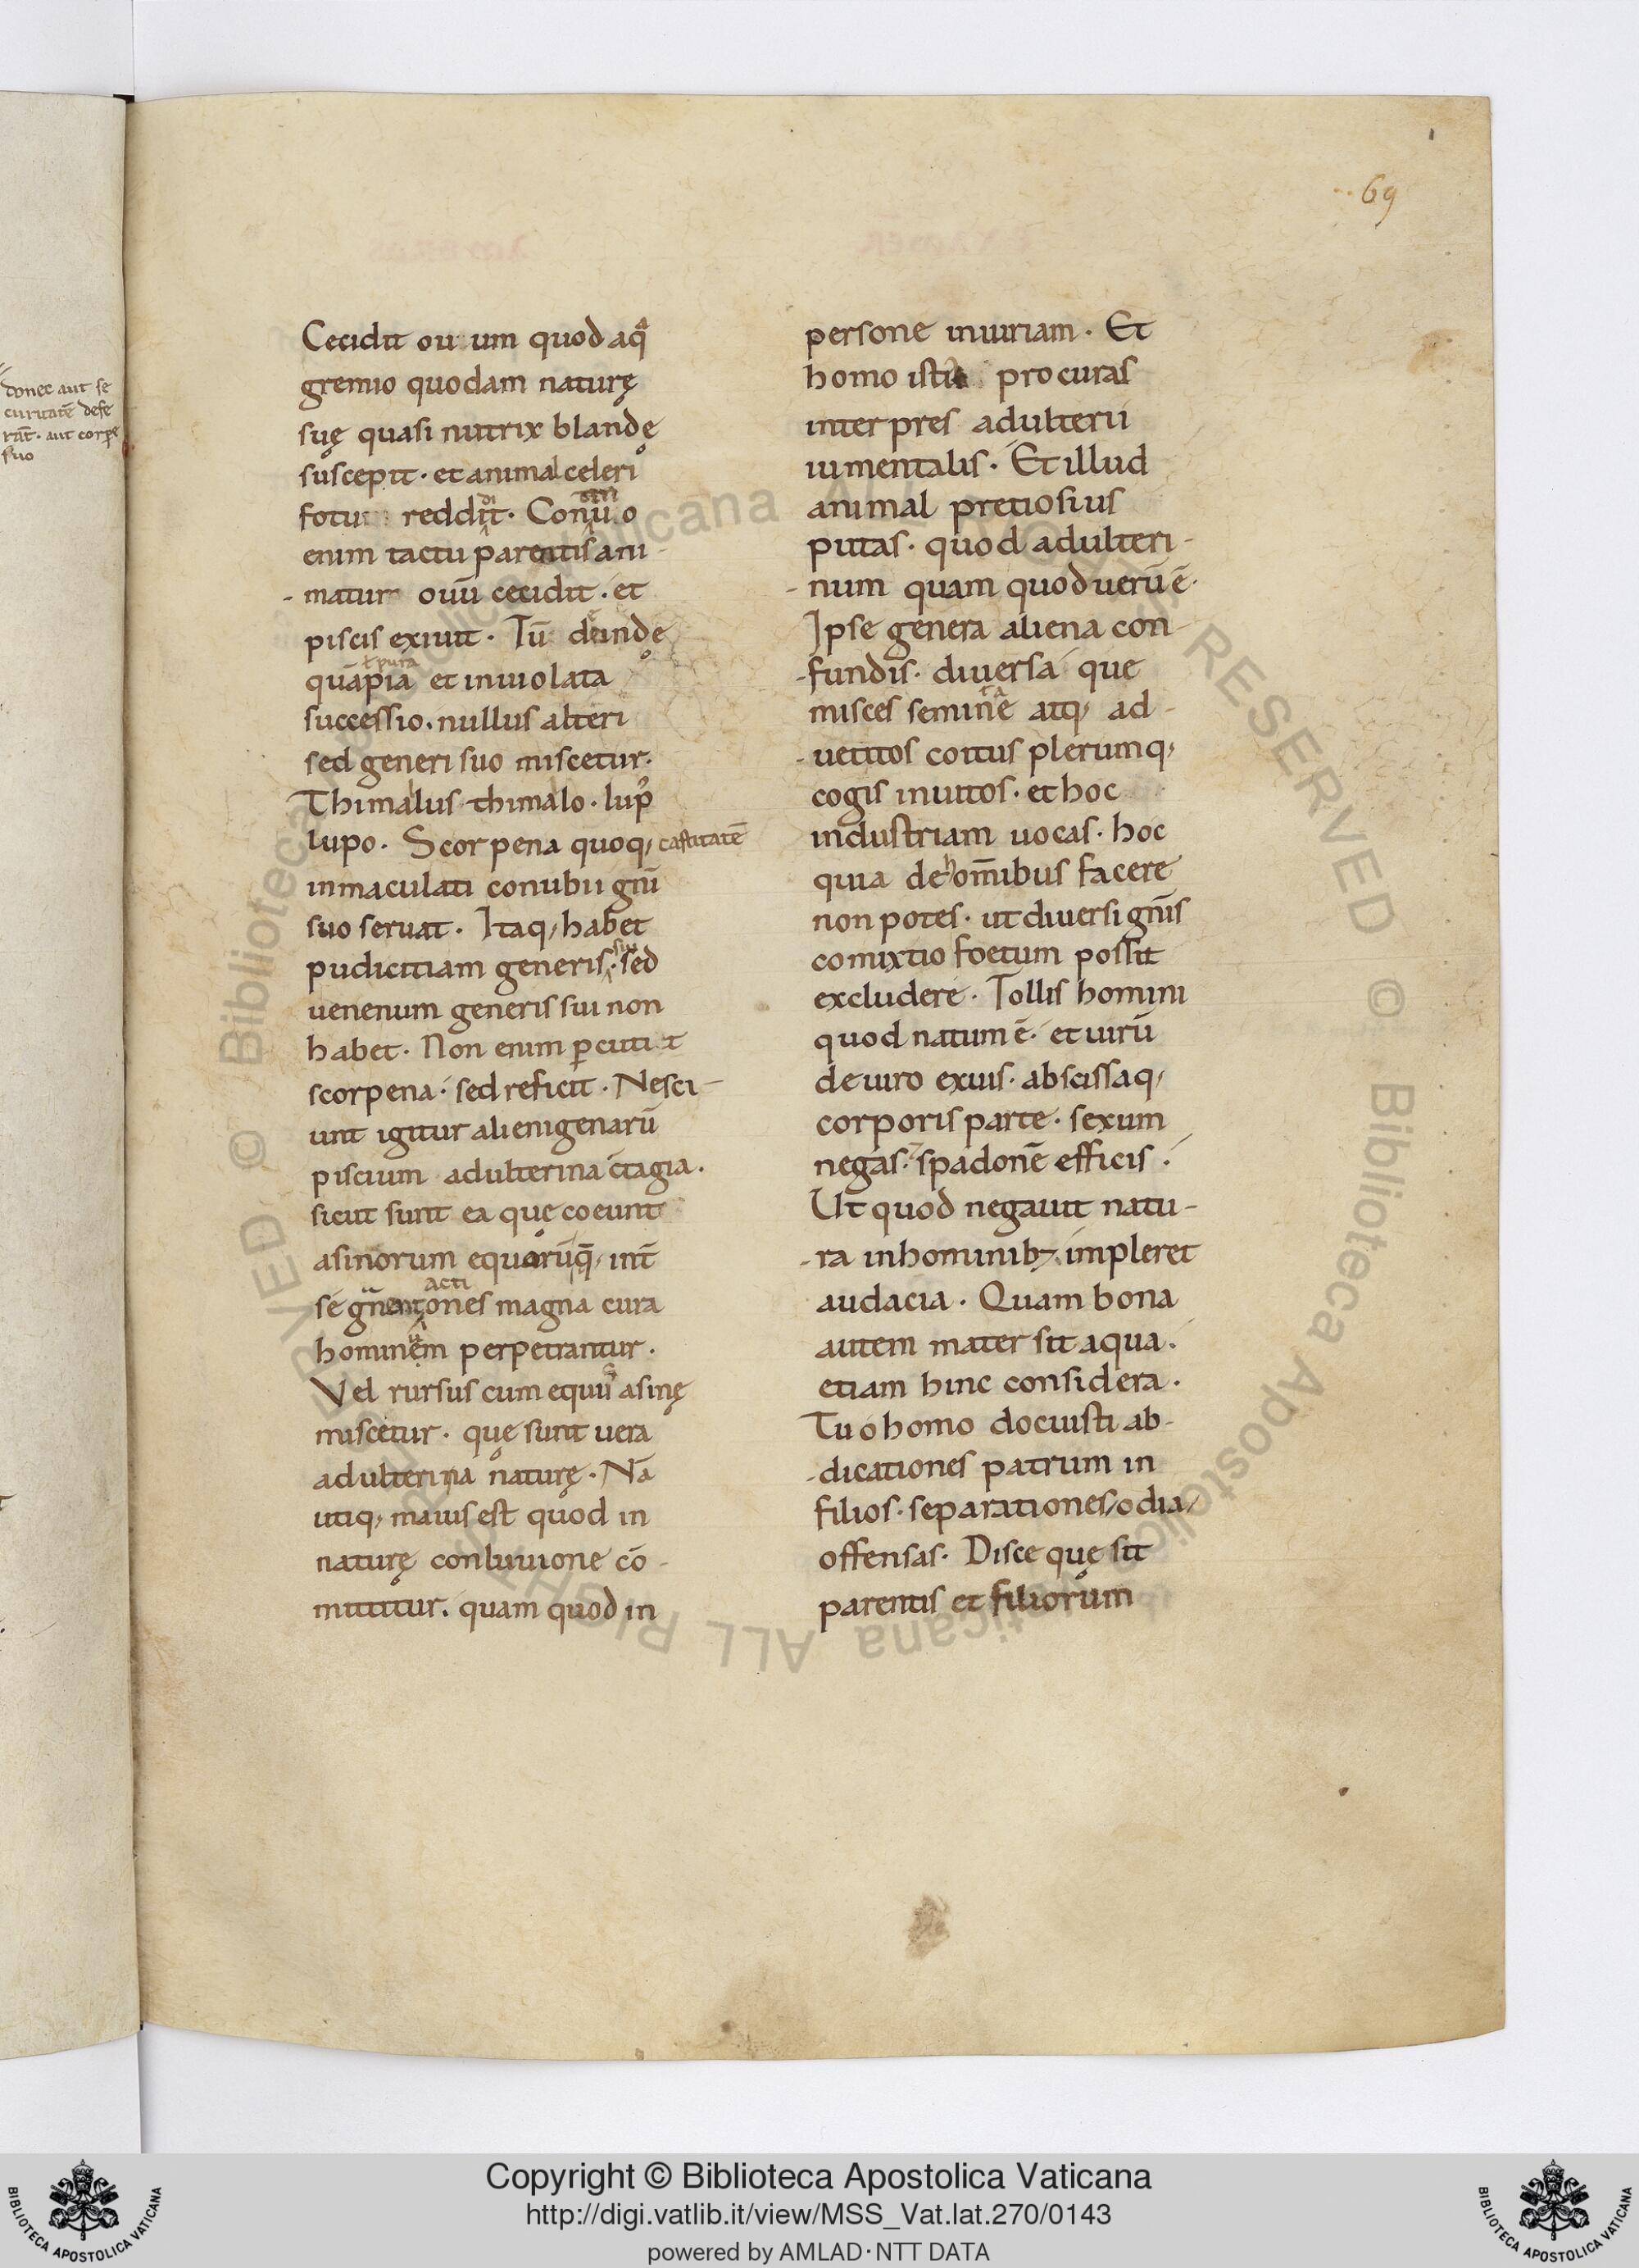 69
donec aut se
curitatē defe
rāt · aut corpe
suo
Cecidit ouum quod aqͣ
gremio quodam naturę
suę quasi nutrix blandę
suscepit · et animal celeri
fotu reddidit · Con
enim tactu parentis ani-
-matur ouū cecidit · et
piscis exiuit · Tū deinde
ł pura
quā pia et inuiolata
successio · nullus alteri
sed generi suo miscetur ·
Thimalus thimalo · lup᾿
lupo · Scorpena quoq; castitatē
inmaculati conubii gnī
suo seruat · Itaq; habet
pudicitiam generis sui · sed
uenenum generis sui non
habet · Non enim ꝑcutit
scorpena · sed reficit · Nesci-
unt igitur alienigenarū
piscium adulterina c̄tagia ·
sicut sunt ea quę coeunt
asinorum equorūq̄; int̄
acti
sé ones magna cura
hominum perpetrantur ·
Vel rursus cum equus asinę
miscetur · que sunt uera
adulterina naturę · Nā
utiq; maius est quod in
naturę conluuione cō-
mittitur · quam quod in
persone iniuriam · Et
homo procuras
interpres adulterii
iumentalis · Et illud
animal pretiosius
putas · quod adulteri-
-num quam quod uerū ē ·
Ipse genera aliena con-
-fundis · diuersa que
ta
misces semine atq; ad-
-uetitos coitus plerumq;
cogis inuitos · et hoc
industriam uocas · hoc
quia de hom̄ibus facere
non potes · ut diuersi gn̄is
comixtio foetum possit
excludere · Tollis homini
quod natum ē · et uirū
de uiro exuis · abscissaq;
corporis parte · sexum
negas · spadonē efficis ·
Ut quod negauit natu-
-ra inhominib; impleret
audacia · Quam bona
autem mater sit aqua ·
etiam hinc considera ·
Tu ó homo docuisti ab-
-dicationes patrum in
filios · separationes / odia /
offensas · Disce quę sit
parentis et filiorum
Copyright © Biblioteca Apostolica Vaticana
http://digi.vatlib.it/view/MSS_Vat.lat.270/0143
powered by AMLAD·NTT DATA
BIBLIOTECA APOSTOLICA VATICANA
BIBLIOTECA APOSTOLICA VATICANA